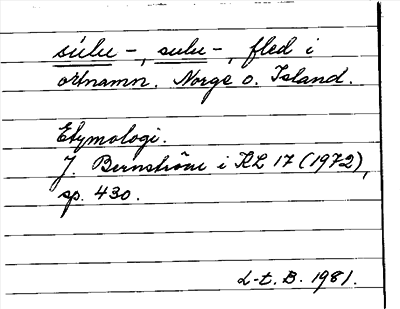 súlu -, sulu -, fled i
ortnamn. Norge o. Island.
Etymologi.
J. Bernström i KL 17 (1972),
sp. 430.
L-t. B. 1981.